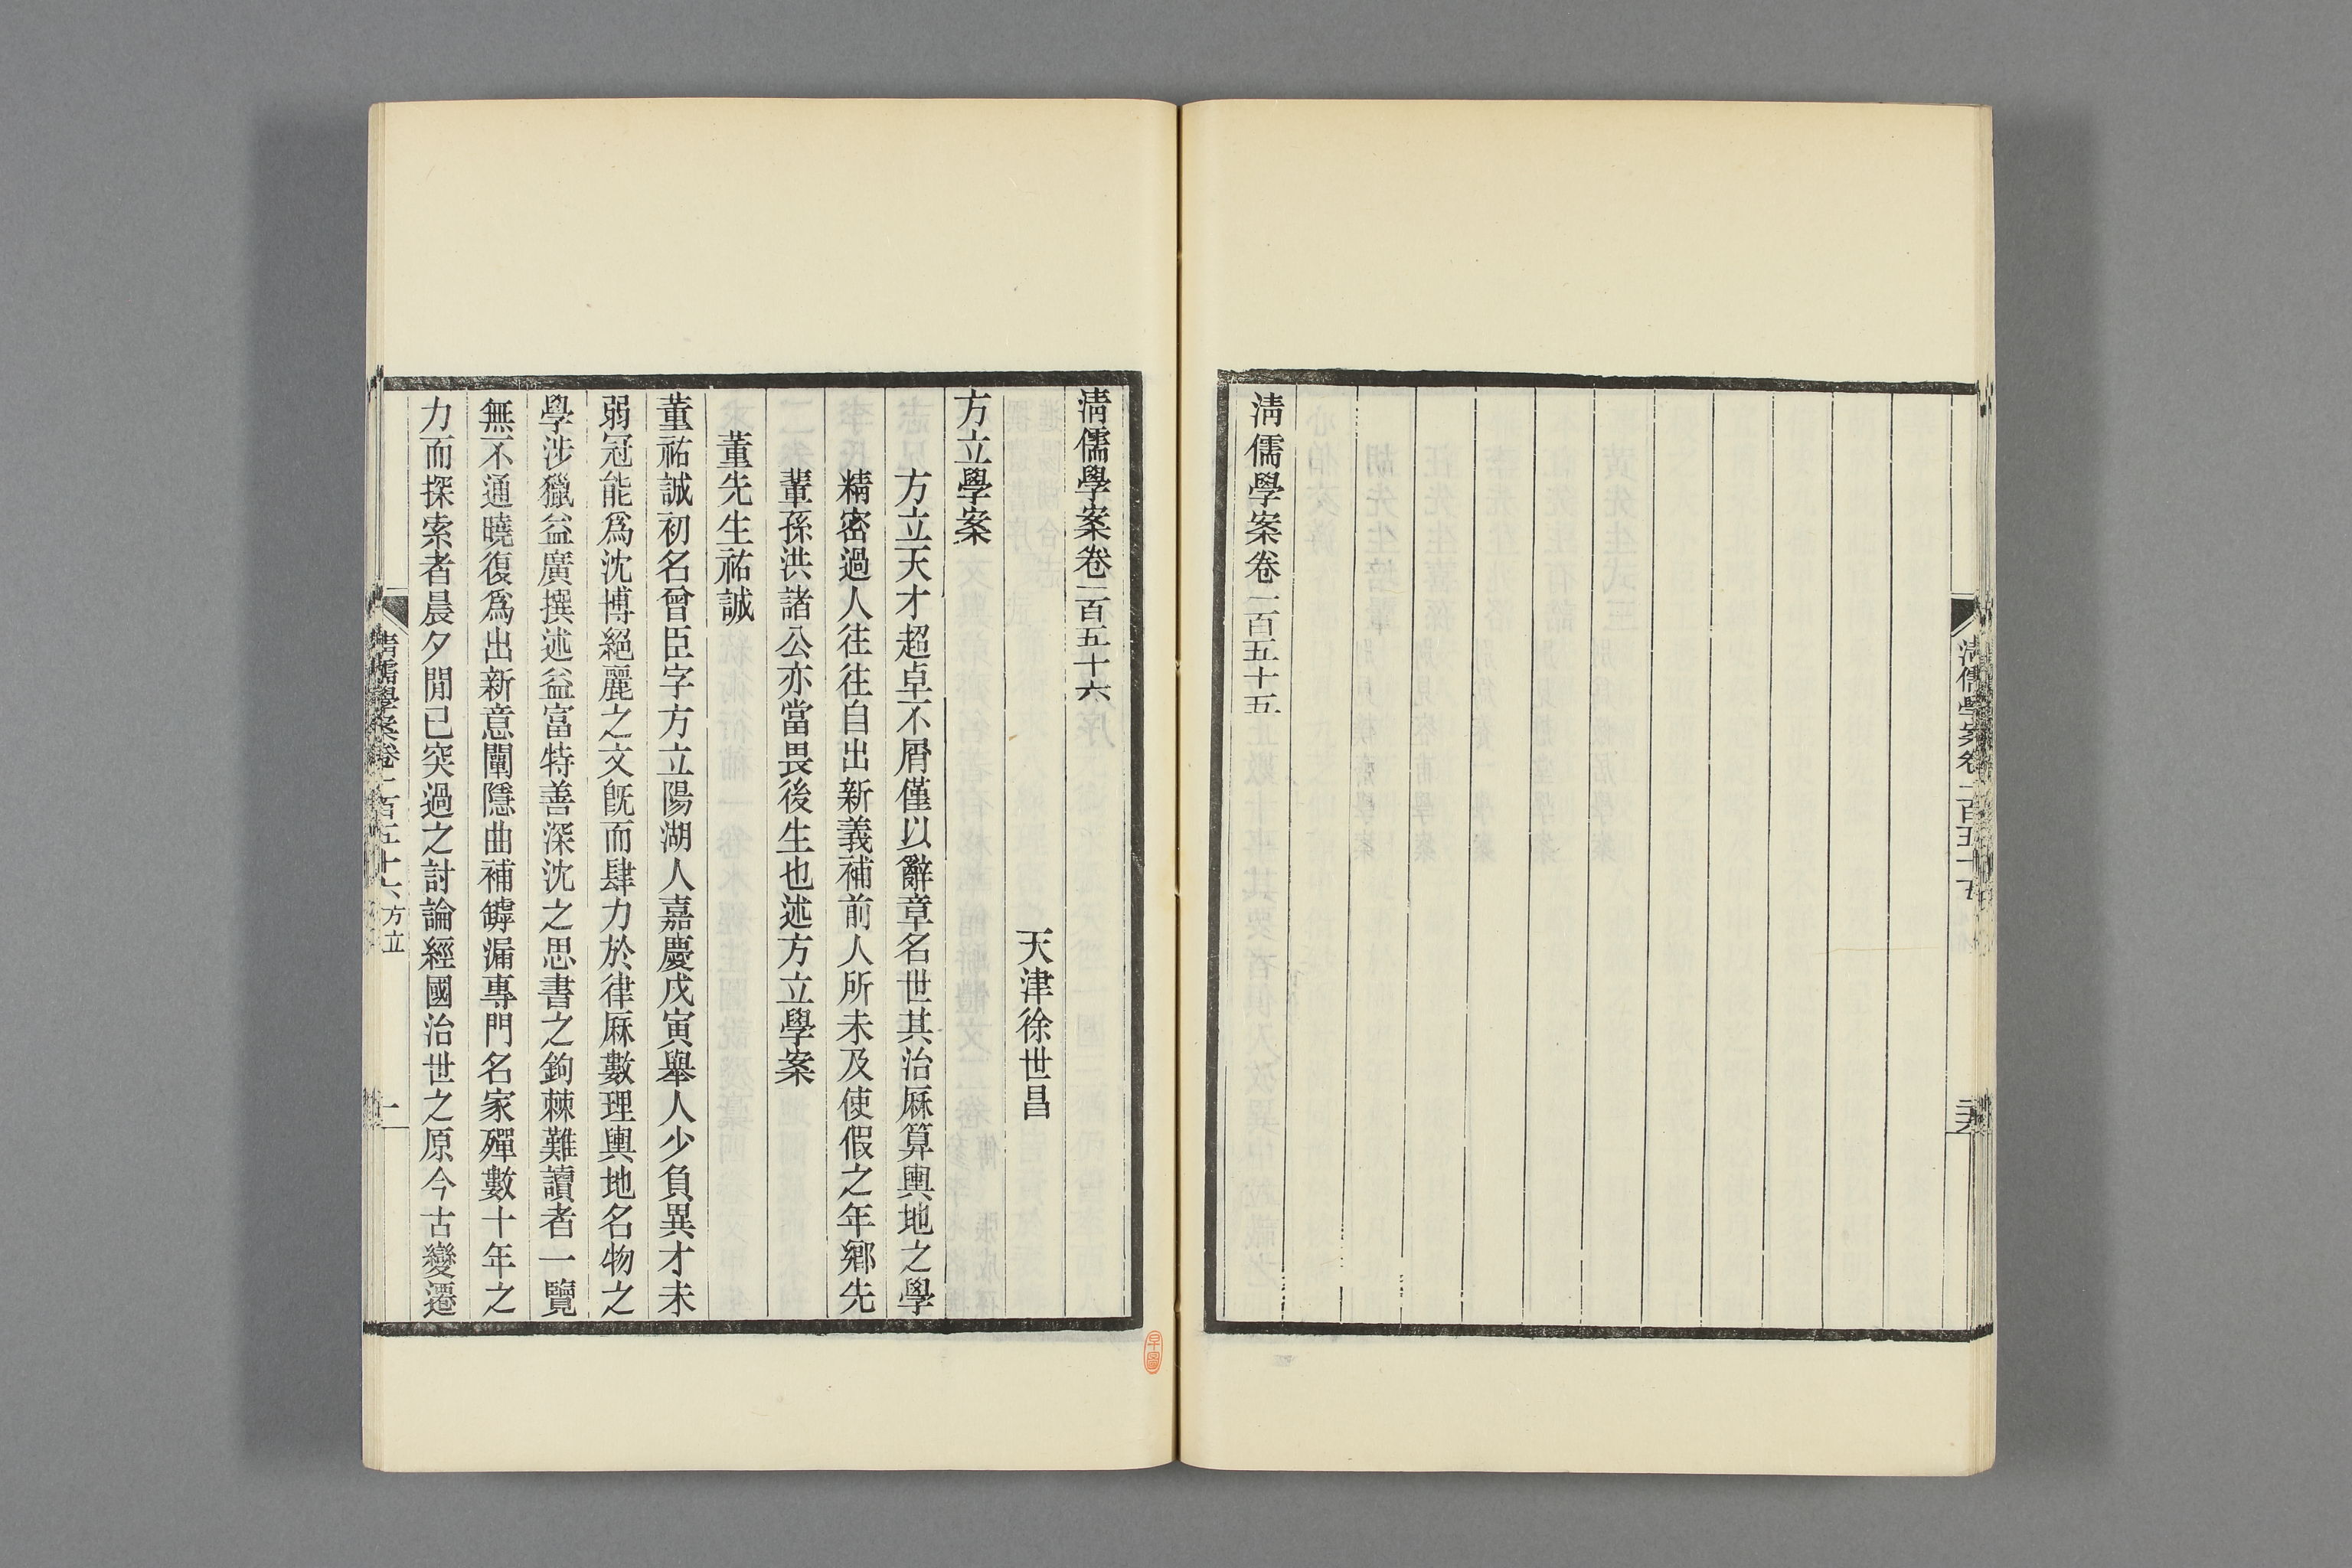 清儒學案卷一百五十五
清儒學案卷一百五十五
清儒學案卷一百五十六
天津徐世昌
方立學案
方立天才超卓不屑僅以辭章名世其治厤算輿地之學
精密過人往往自出新義補前人所未及使假之年鄉先
輩孫洪諸公亦當畏後生也述方立學案
董先生祐誠
董祐誠初名曾臣字方立陽湖人嘉慶戊寅舉人少負異才未
弱冠能爲沈博絕麗之文旣而肆力於律厤數理輿地名物之
學涉獵益廣撰述益富特善深沈之思書之鉤棘難讀者一覽
無不通曉復爲出新意闡隱曲補罅漏專門名家殫數十年之
力而探索者晨夕閒已突過之討論經國治世之原今古變遷
清儒學案卷一百五十六 方立
一
早圖